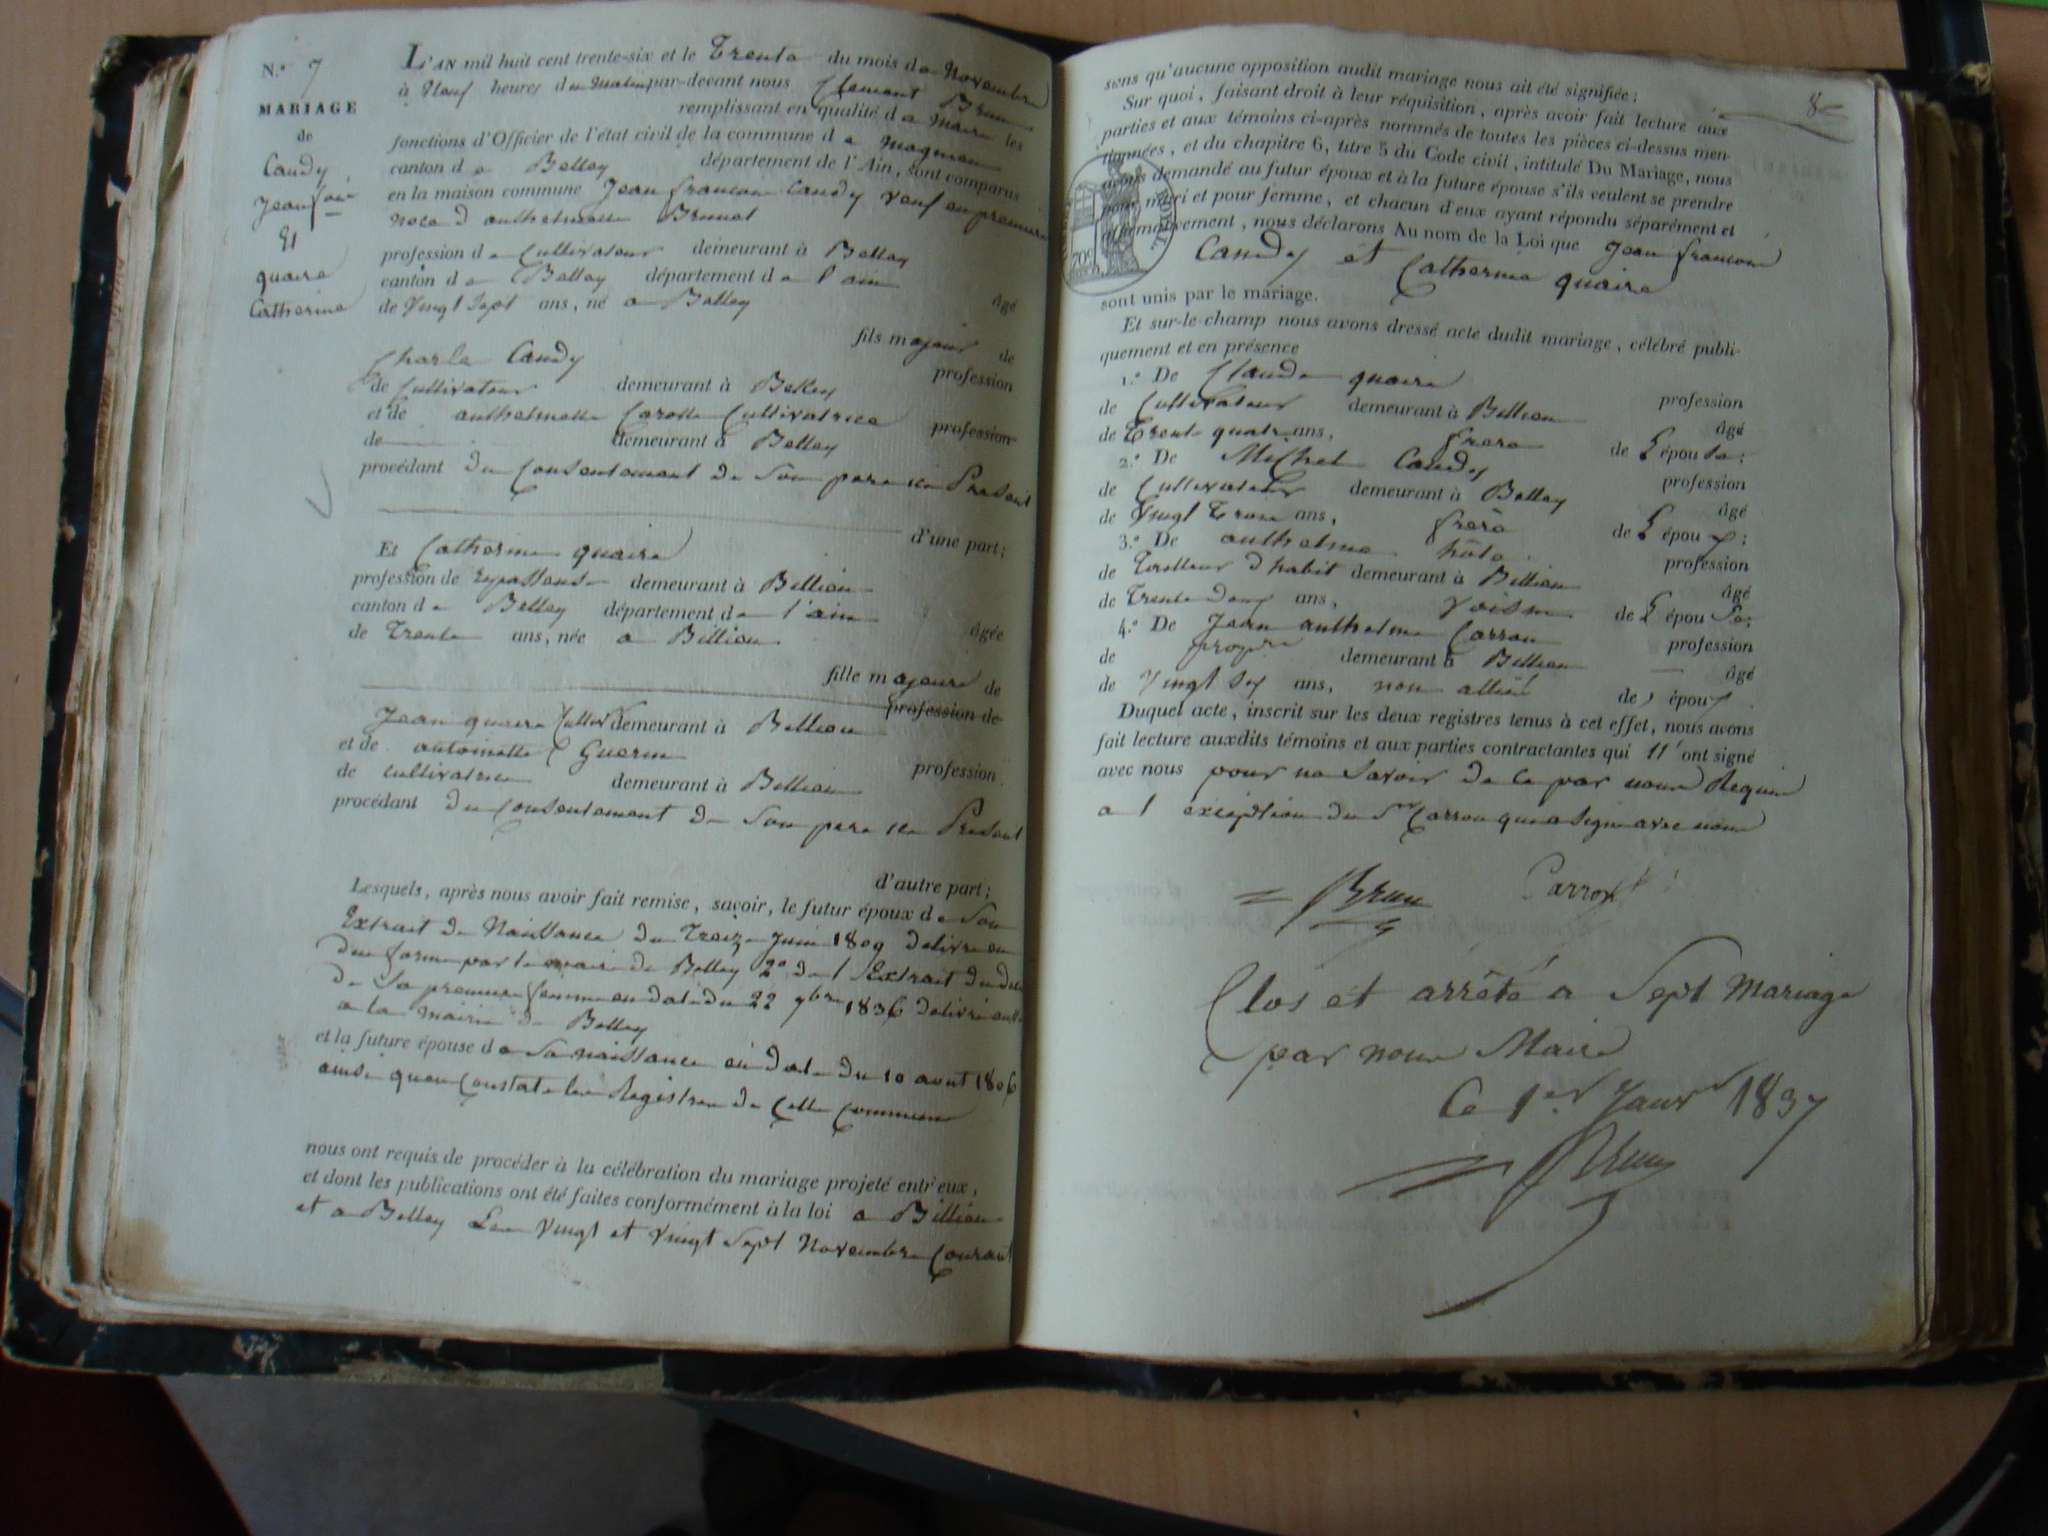 N.º 7
MARIAGE
de
Candy
Jean fois
Et
quaire
Catherine
L'AN mil huit cent trente-six et le Trente du mois de Novembre
à Neuf heures du matin par-devant nous Clement Brun
remplissant en qualité de Maire les
fonctions d'Officier de l'état civil de la commune de Magnieu
canton de Belley département de l'Ain, sont comparus
en la maison commune Jean francois Candy veuf en premiere
noce d anthelmette Brunet
profession de Cultivateur demeurant à Belley
canton de Belley département de l'ain
âgé
de Vingt Sept ans, né a Belley
fils majeur de
Charle Candy
profession
de Cultivateur demeurant à Belley
et de anthelmette Carotte Cultivatrice profession
de demeurant à Belley
procédant du Consentement de Son pere ici Présent
d'une part;
Et Catherine quaire
profession de repasseuse demeurant à Billieu
canton de Belley département de l'ain
âgée
de Trente ans, née a Billieu
fille majeure de
profession de
Jean quaire Cultivr demeurant à Billieu
et de antoinette Guerin
profession
de cultivatrice demeurant à Billieu
procédant du Consentement de Son pere ici Présent
d'autre part;
Lesquels, après nous avoir fait remise, savoir, le futur époux de Son
Extrait de Naissance du Treize Juin 1809 delivré en
due forme par le maire de Belley 2º de l'Extrait du déces
de Sa premiere femme en date du 22 9bre 1836 delivré aussi
a la Mairie de Belley
et la future épouse de Sa naissance en date du 10 aout 1806
ainsi quen Constate les Registres de Cette Commune
nous ont requis de procéder à la célébration du mariage projeté entr'eux,
et dont les publications ont été faites conformément à la loi a Billieu
et a Belley Les Vingt et Vingt Sept Novembre Courant
8
sens qu'aucune opposition audit mariage nous ait été signifiée;
Sur quoi, faisant droit à leur réquisition, après avoir fait lecture aux
parties et aux témoins ci-après nommés de toutes les pièces ci-dessus men-
tionnées, et du chapitre 6, titre 5 du Code civil, intitulé Du Mariage, nous
avons demandé au futur époux et à la future épouse s'ils veulent se prendre
pour mari et pour femme, et chacun d'eux ayant répondu séparément et
affirmativement, nous déclarons Au nom de la Loi que Jean francois
Candy et Catherine quaire
ROYAL.
70c
sont unis par le mariage.
Et sur-le-champ nous avons dressé acte dudit mariage, célébré publi-
quement et en présence
1.º De Claude quaire
profession
de Cultivateur demeurant à Billieu
âgé
de Trente quatre ans, frere de L'épouse;
2.º De Michel Candy
profession
de Cultivateur demeurant à Belley
âgé
de Vingt Trois ans, frere de L'époux;
3.º De anthelme hôte
profession
de Tailleur d'habit demeurant à Billieu
âgé
de Trente deux ans, voisin de L'épouse;
4.º De Jean anthelme Carron
profession
de propre demeurant à Billieu
âgé
de Vingt Six ans, non allié de l'époux.
Duquel acte, inscrit sur les deux registres tenus à cet effet, nous avons
fait lecture auxdits témoins et aux parties contractantes qui n'ont signé
avec nous pour ne Savoir de ce par nous Requis
a l'exception du Sr Carron qui a Signé avec nous
Brun Carron
Clos et arrêté a Sept Mariage
par nous Maire
Ce 1er Janvr 1837
Brun